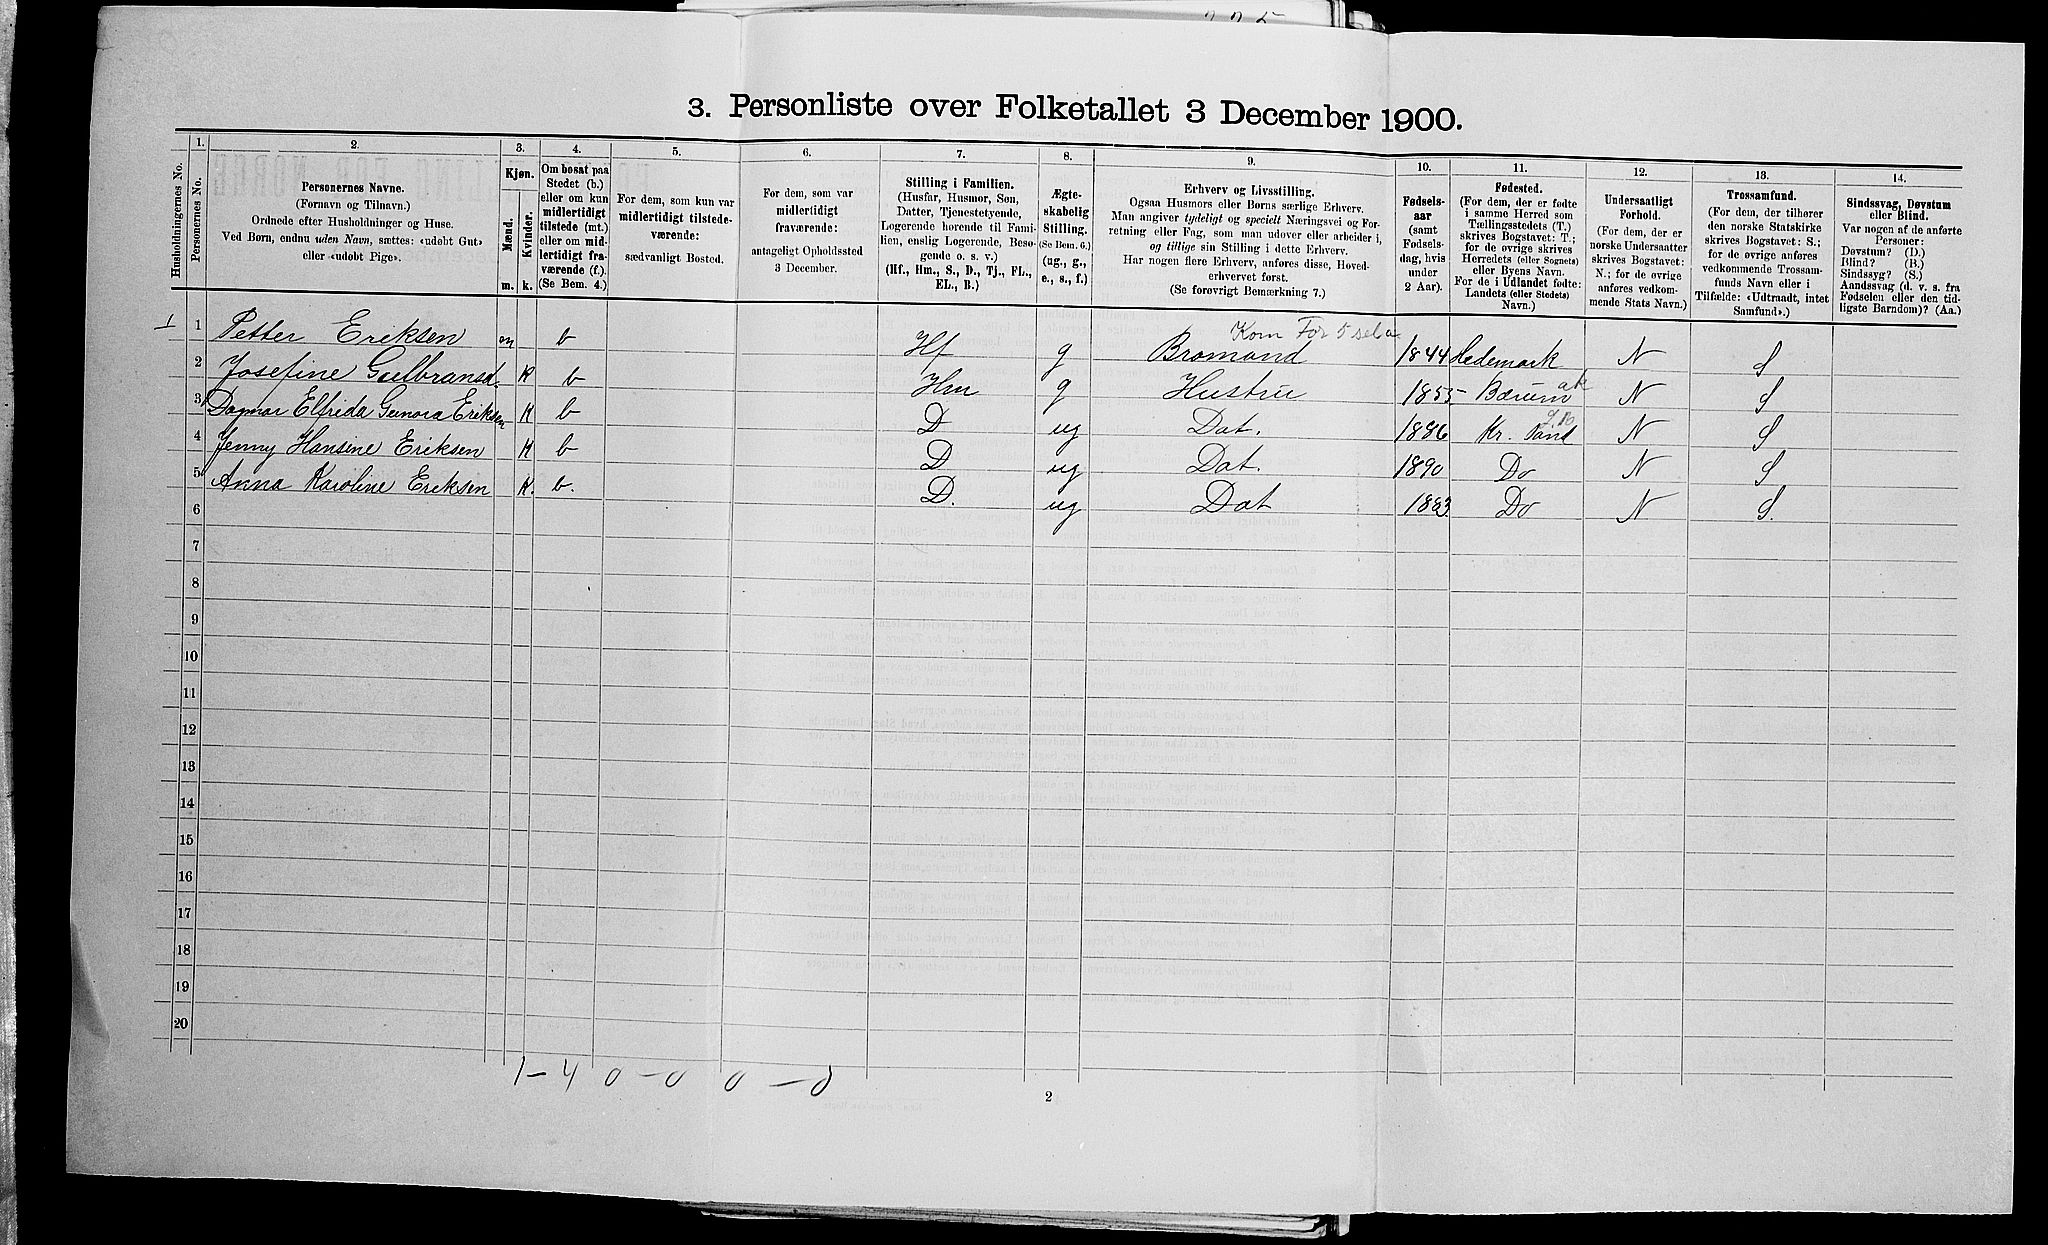 3. Personliste over Folketallet 3 December 1900.
Husholdningernes No.
1.
Personernes No.
2.
Personernes Navne.
(Fornavn og Tilnavn.)
Ordnede efter Husholdninger og Huse.
Ved Børn, endnu uden Navn, sættes: «udøbt Gut»
eller «udøbt Pige».
3.
Kjøn.
Mænd.
Kvinder.
m. k.
4.
Om bosat paa
Stedet (b.)
eller om kun
midlertidigt
tilstede (mt.)
eller om mid-
lertidigt fra-
værende (f.).
(Se Bem. 4.)
5.
For dem, som kun var
midlertidigt tilstede-
værende:
sædvanligt Bosted.
6.
For dem, som var
midlertidigt
fraværende:
antageligt Opholdssted
3 December.
7.
Stilling i Familien.
(Husfar, Husmor, Søn,
Datter, Tjenestetyende,
Logerende hørende til Fami-
lien, enslig Logerende, Besø-
gende o. s. v.)
(Hf., Hm., S., D., Tj., FL.,
EL., B.)
8.
Ægte-
skabelig
Stilling.
(Se Bem. 6.)
(ug., g.,
e., s., f.)
9.
Erhverv og Livsstilling.
Ogsaa Husmors eller Børns særlige Erhverv.
Man angiver tydeligt og specielt Næringsvei og For-
retning eller Fag, som man udøver eller arbeider i,
og tillige sin Stilling i dette Erhverv.
Har nogen flere Erhverv, anføres disse, Hoved-
erhvervet først.
(Se forøvrigt Bemærkning 7.)
10.
Fødsels-
aar
(samt
Fødsels-
dag, hvis
under
2 Aar).
11.
Fødested.
(For dem, der er fødte
i samme Herred som
Tællingsstedets (T.)
skrives Bogstavet: T.;
for de øvrige skrives
Herredets (eller Sognets)
eller Byens Navn.
For de i Udlandet fødte:
Landets (eller Stedets)
Navn.)
12.
Undersaatligt
Forhold.
(For dem, der er
norske Undersaatter
skrives Bogstavet:
N.; for de øvrige
anføres vedkom-
mende Stats Navn.)
13.
Trossamfund.
(For dem, der tilhører
den norske Statskirke
skrives Bogstavet: S.;
for de øvrige anføres
vedkommende Trossam-
funds Navn eller i
Tilfælde: «Udtraadt, intet
Samfund».)
14.
Sindssvag, Døvstum
eller Blind.
Var nogen af de anførte
Personer:
Døvstum? (D.)
Blind? (B.)
Sindssyg? (S.)
Aandssvag (d. v. s. fra
Fødselen eller den tid-
ligste Barndom)? (Aa.)
Kom For 5 sel a
1 1 Petter Eriksen m b Hf g Bromand 1844 Hedemark N S
2 Josefine Gulbransd. K b Hm g Hustru 1855 Bærum ak N S
3 Dagmar Elfrida Gunora Eriksen K b D ug Dat. 1886 Kr. Sand N S
4 Jenny Hansine Eriksen K b D ug Dat. 1890 Do N S
5 Anna Karoline Eriksen K. b. D. ug Dat 1883. Do N S.
6
7
8
9
10
11
12
13
14
15
16
17
18
19
20
1 – 4 0 – 0 0 – 0
2